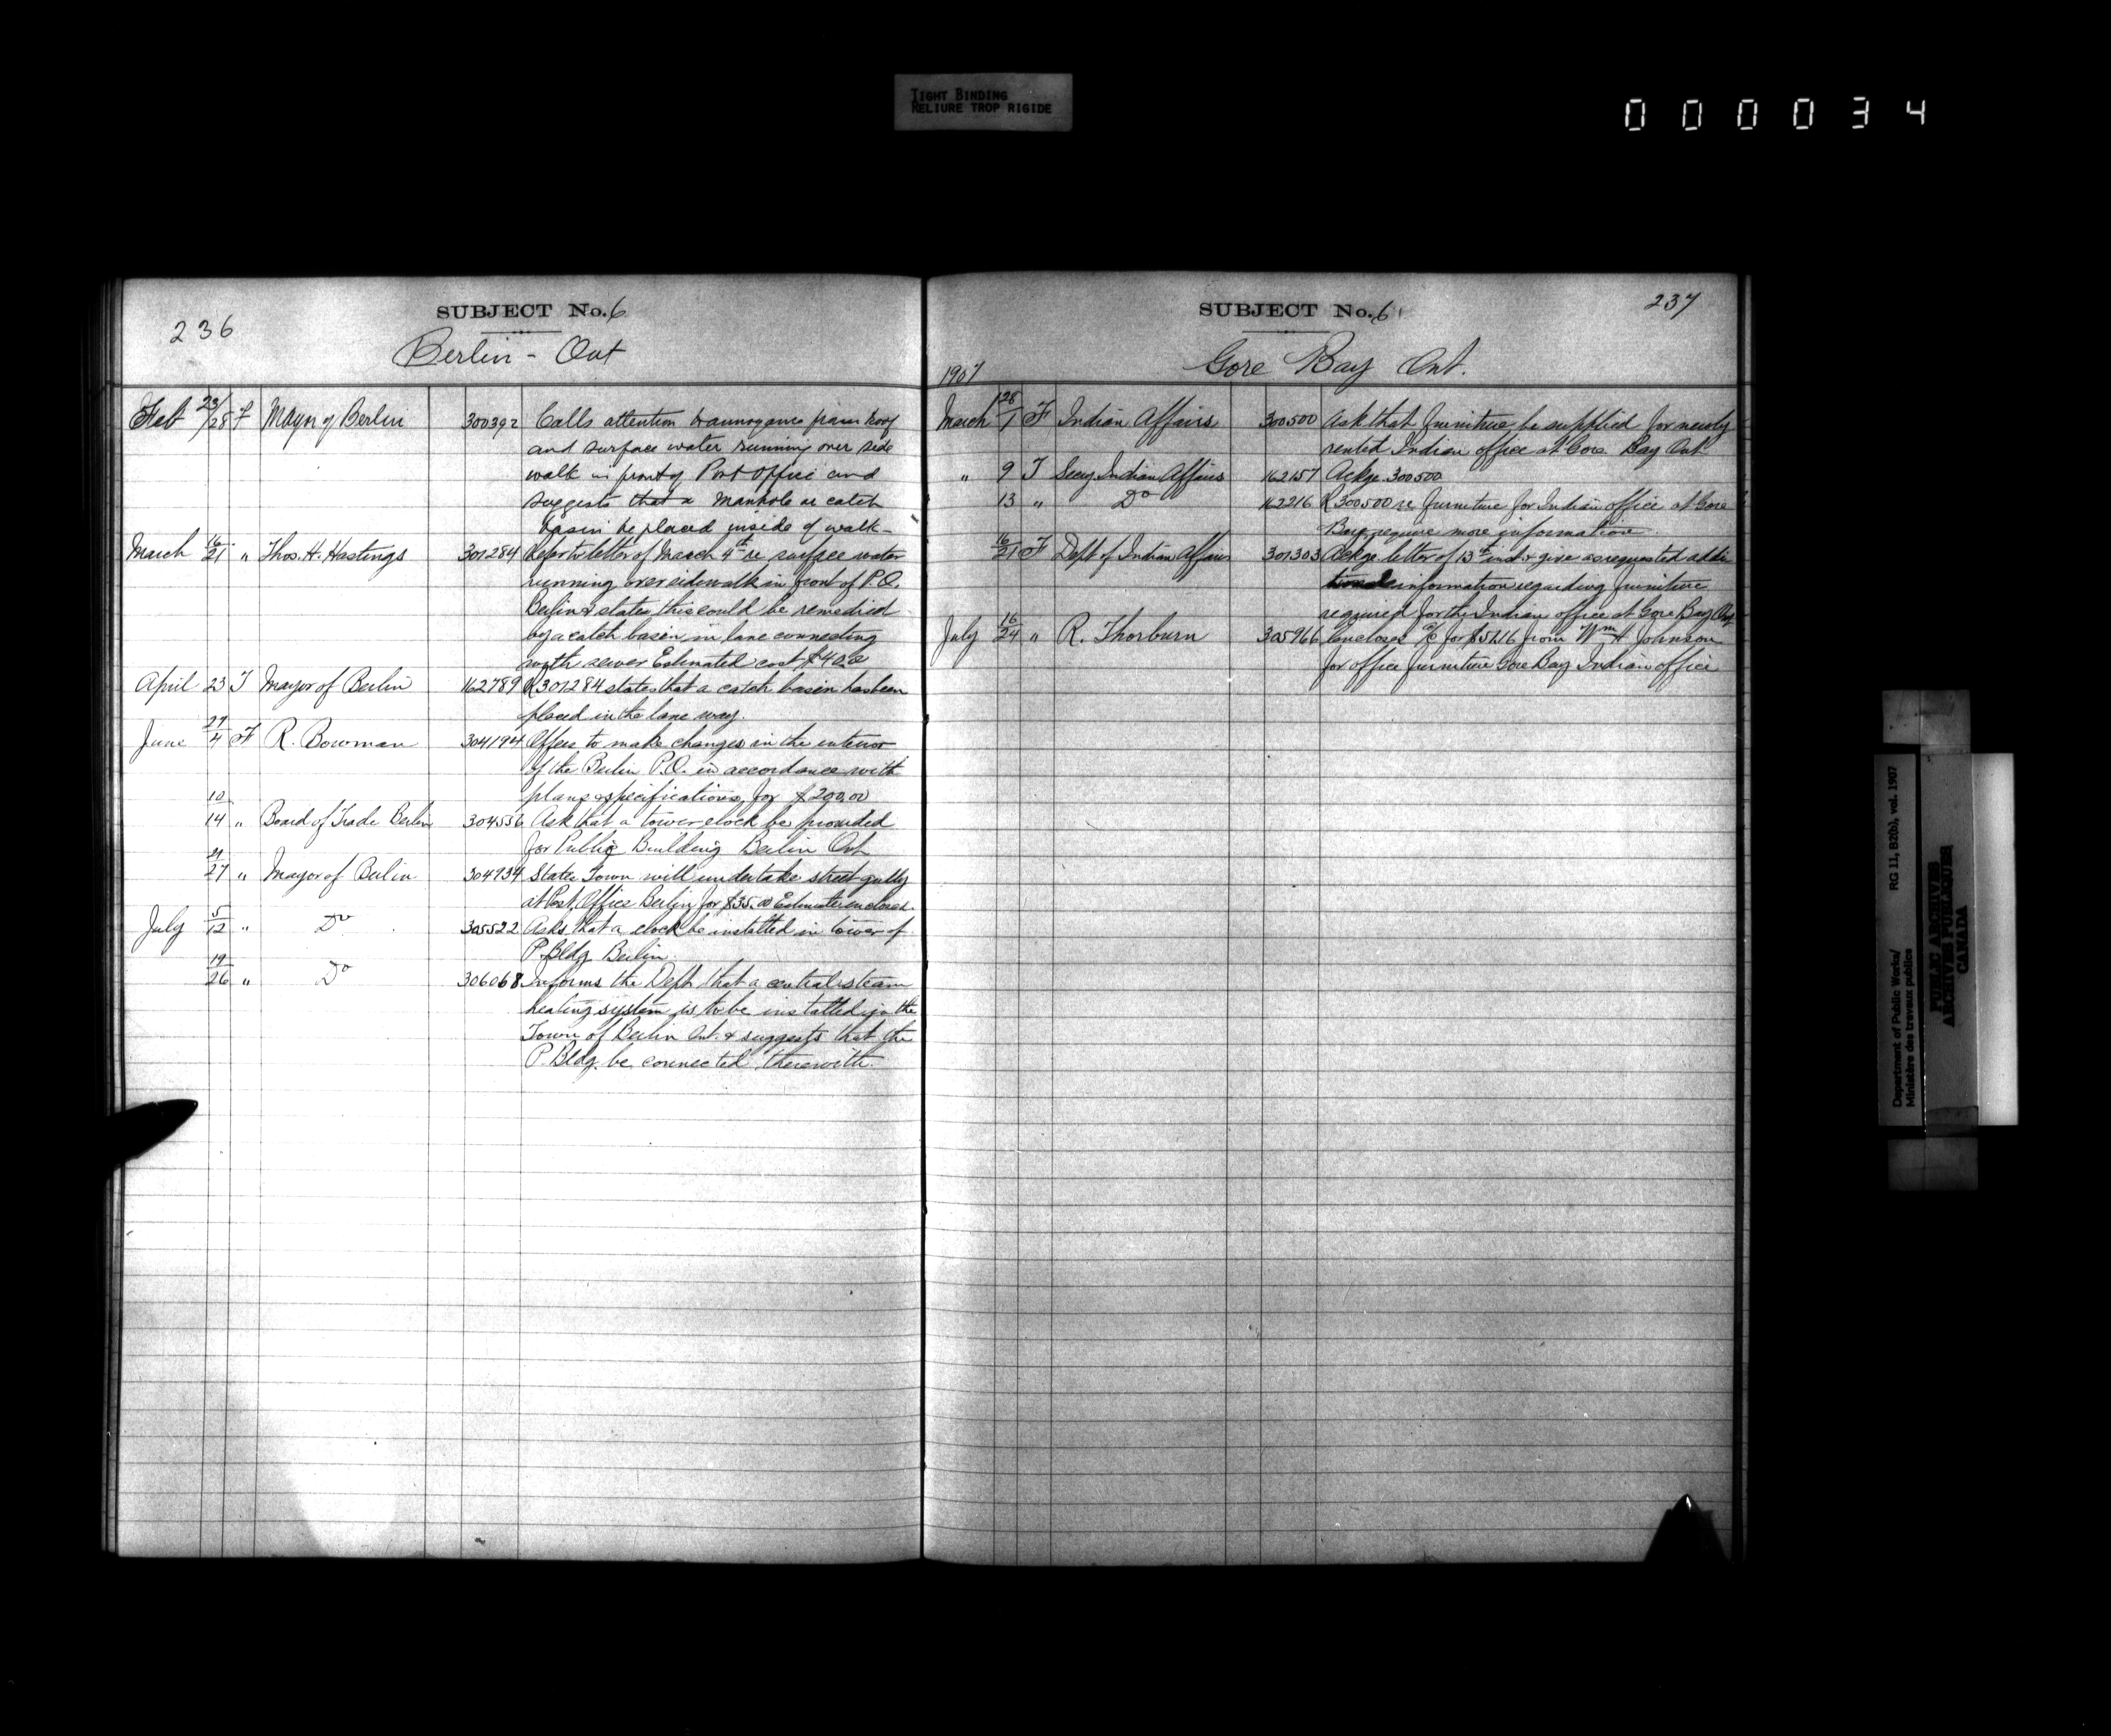 TIGHT BINDING
RELIURE TROP RIGIDE
000034
236
SUBJECT No. 6
Berlin - Ont
Feb 23/28 F Mayor of Berlin 300392 Calls attention to annoyance from roof
and surface water running over side
walk in front of Post Office and
suggests that a manhole or catch
basin be placed inside of walk -
March 16/21 " Thos. H. Hastings 301284 Refer to letter of March 4th re surface water
running over sidewalk in front of P.O.
Berlin & states this could be remedied
by a catch basin in lane connecting
with sewer Estimated cost $40.00
April 23 T Mayor of Berlin 162789 R 301284 states that a catch basin has been
placed in the lane way.
June 27/4 F R. Bowman 304194 Offers to make changes in the interior
of the Berlin P.O. in accordance with
plans & specifications for $200.00
10/14 " Board of Trade Berlin 304556 Ask that a tower clock be provided
for Public Building Berlin Ont
21/27 " Mayor of Berlin 304934 States Town will undertake street gully
at Post Office Berlin for $35.00 Estimate enclosed.
July 5/12 " Do 305522 Asks that a clock be installed in tower of
P. Bldg Berlin
19/26 " Do 306068 Informs the Dept. that a central steam
heating system is to be installed in the
Town of Berlin Ont. & suggests that the
P. Bldg. be connected therewith.
SUBJECT No. 6
237
Gore Bay Ont.
1907
March 28/1 F Indian Affairs 300500 Ask that furniture be supplied for newly
rented Indian office at Gore Bay Ont
" 9 T Secy Indian Affairs 162157 Ackge 300500
13 " Do 162216 R 300500 re furniture for Indian office at Gore
Bay, require more information.
16/21 F Dept of Indian Affairs 301303 Ackge letter of 13th inst & give as requested addi
tional information regarding furniture
required for the Indian office at Gore Bay Ont
July 16/24 " R. Thorburn 305966 Encloses a/c for $52.16 from Wm H Johnson
for office furniture Gore Bay Indian office
Department of Public Works/
Ministère des travaux publics
RG 11, B2(b), vol. 1907
PUBLIC ARCHIVES
ARCHIVES PUBLIQUES
CANADA